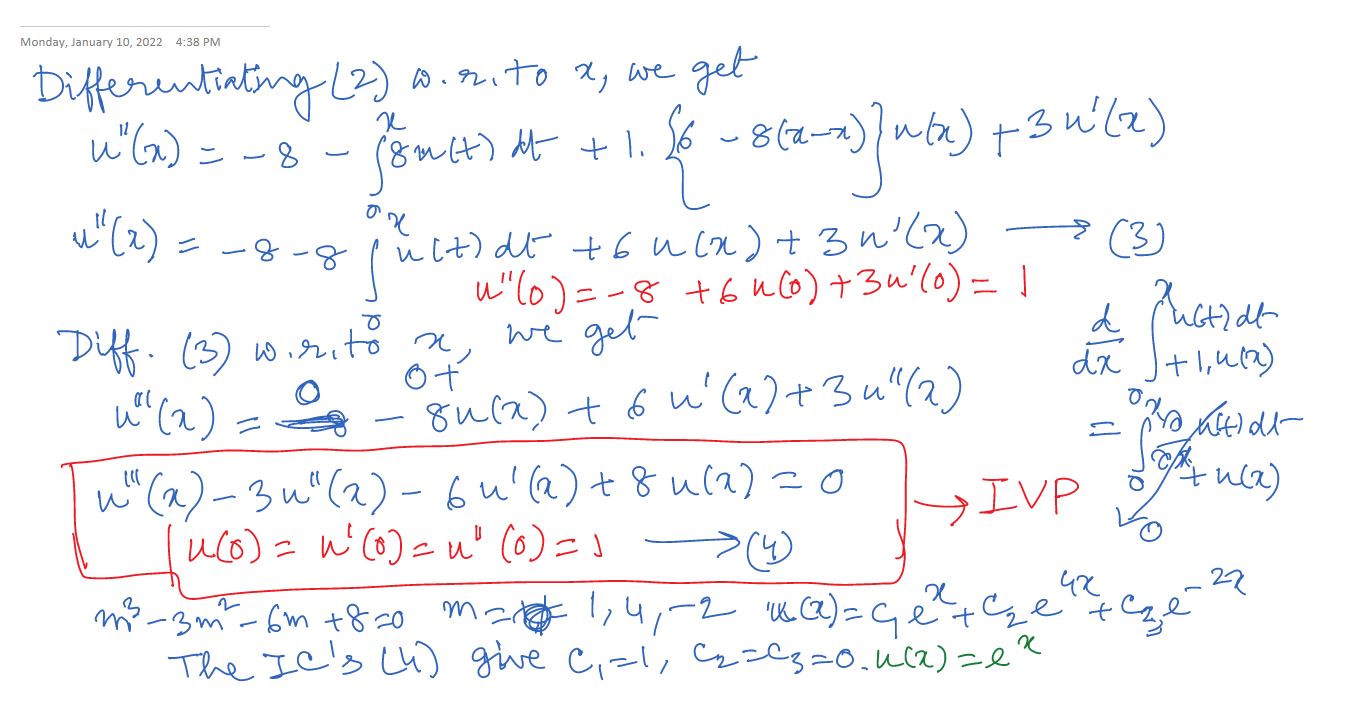 Monday, January 10, 2022 4:38 PM
Differentiating (2) w.r.to x, we get
u''(x) = -8 - ∫₀ˣ 8u(t) dt + 1. {6 - 8(x-x)} u(x) + 3u'(x)
u''(x) = -8 -8 ∫₀ˣ u(t) dt + 6 u(x) + 3u'(x) → (3)
u''(0) = -8 + 6u(0) + 3u'(0) = 1
Diff. (3) w.r.to x, we get
u'''(x) = 0 + - 8u(x) + 6 u'(x) + 3 u''(x)
u'''(x) - 3u''(x) - 6u'(x) + 8u(x) = 0
→ IVP
u(0) = u'(0) = u''(0) = 1 → (4)
d/dx ∫₀ˣ u(t) dt
+ 1. u(x)
= ∫₀ˣ ∂/∂x u(t) dt
+ u(x)
0
m³ - 3m² - 6m + 8 = 0 m = 1, 4, -2 u(x) = c₁eˣ + c₂e⁴ˣ + c₃e⁻²ˣ
The IC's (4) give c₁=1, c₂=c₃=0. u(x) = eˣ